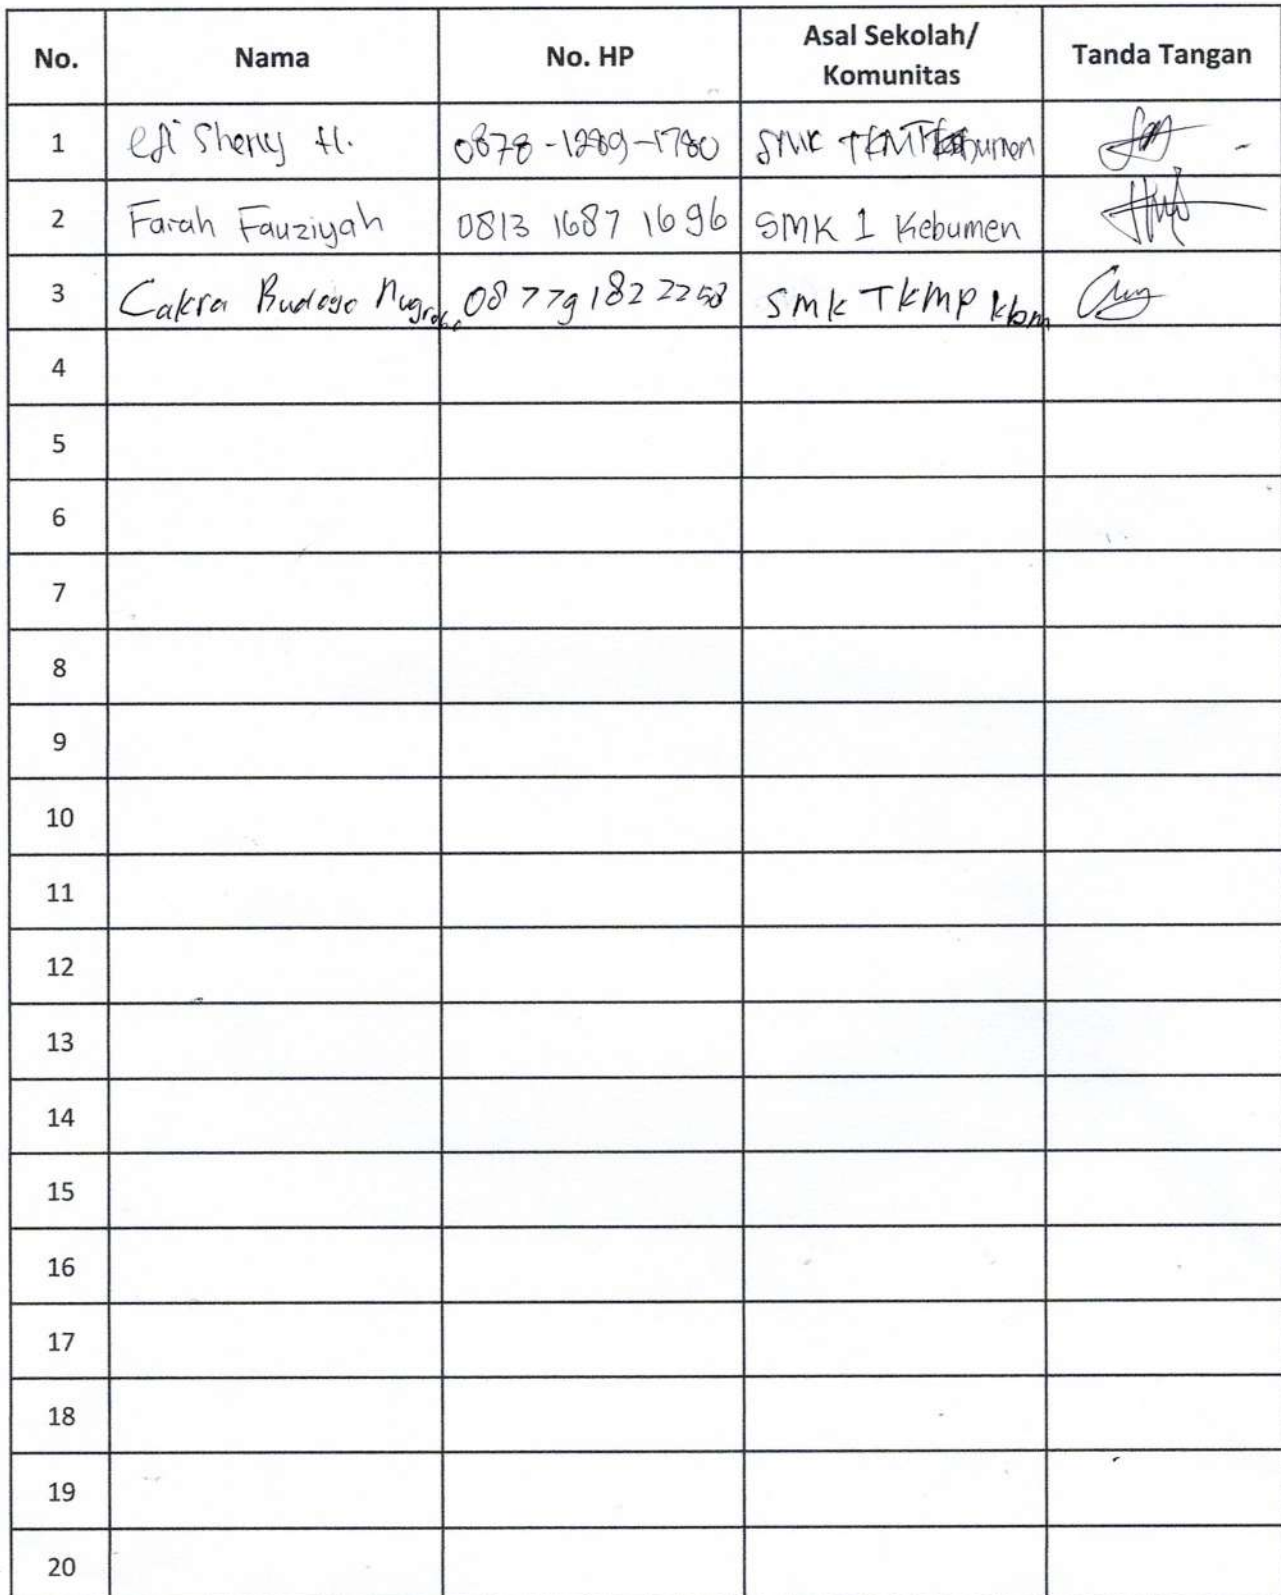 No. Nama No. HP Asal Sekolah/ Komunitas Tanda Tangan
1 Sherly H. 0878-1289-1780 SMK Kebumen
2 Farah Fauziyah 0813 1687 1696 SMK 1 Kebumen
3 Cakra Nugroho 08 779 182 2258 Smk TKMP kbm
4
5
6
7
8
9
10
11
12
13
14
15
16
17
18
19
20